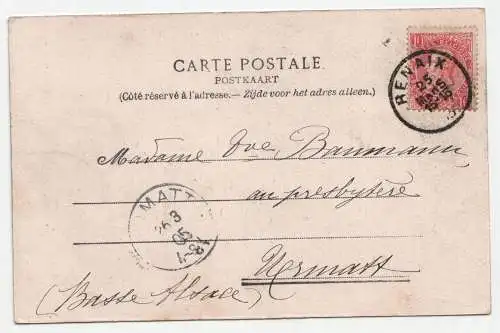 CARTE POSTALE
POSTKAART
(Côté réservé à l'adresse.— Zijde voor het adres alleen.)
10
RENAIX
Madame Vve Baumann
au presbytère
MATT
26 3
05
Uermatt
(Basse Alsace)